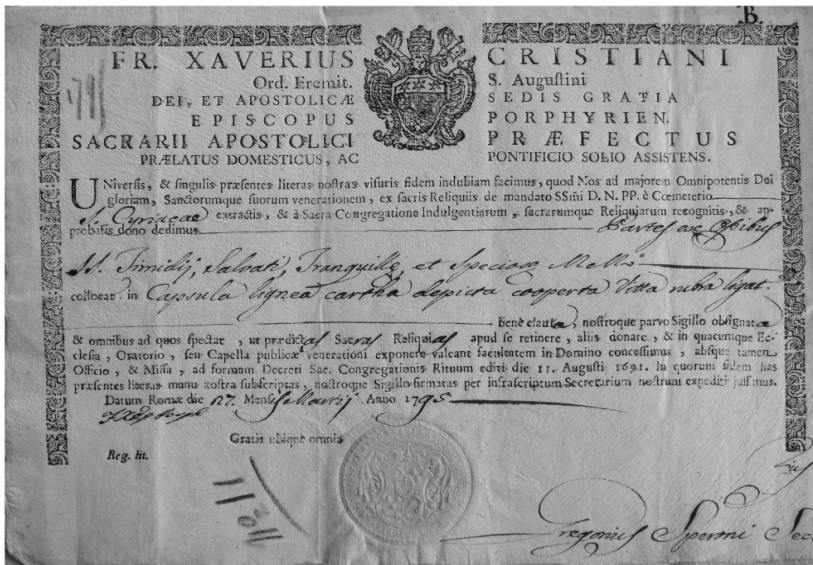 B.
FR. XAVERIUS CRISTIANI
Ord. Eremit. S. Augustini
DEI, ET APOSTOLICÆ SEDIS GRATIA
EPISCOPUS PORPHYRIEN.
SACRARII APOSTOLICI PRÆFECTUS
PRÆLATUS DOMESTICUS, AC PONTIFICIO SOLIO ASSISTENS.
UNiversis, & singulis præsentes literas nostras visuris fidem indubiam facimus, quod Nos ad majorem Omnipotentis Dei
gloriam, Sanctorumque suorum venerationem, ex sacris Reliquiis de mandato SSmi D. N. PP. è Cœmeterio
S. Cyriacæ extractis, & à Sacra Congregatione Indulgentiarum, sacrarumque Reliquiarum recognitis, & ap-
probatis dono dedimus Partes ex Ossibus
SS. Timidij, Salvati, Tranquille, et Speciose MM
collocat. in Capsula lignea cartha depicta cooperta Vitta rubra ligat.
benè clausa, nostroque parvo Sigillo obsignata
& omnibus ad quos spectat, ut prædictas Sacras Reliquias apud se retinere, aliis donare, & in quacumque Ec-
clesia, Oratorio, seu Capella publicæ venerationi exponere valeant facultatem in Domino concessimus, absque tamen
Officio, & Missa, ad formam Decreti Sac. Congregationis Rituum editi die 11. Augusti 1691. In quorum fidem has
præsentes literas manu nostra subscriptas, nostroque Sigillo firmatas per infrascriptum Secretarium nostrum expediri jussimus.
Datum Romæ die 27. Mensis Martij Anno 1795
Gratis ubique omnia
Reg. lit.
Gregorius Speroni Sec